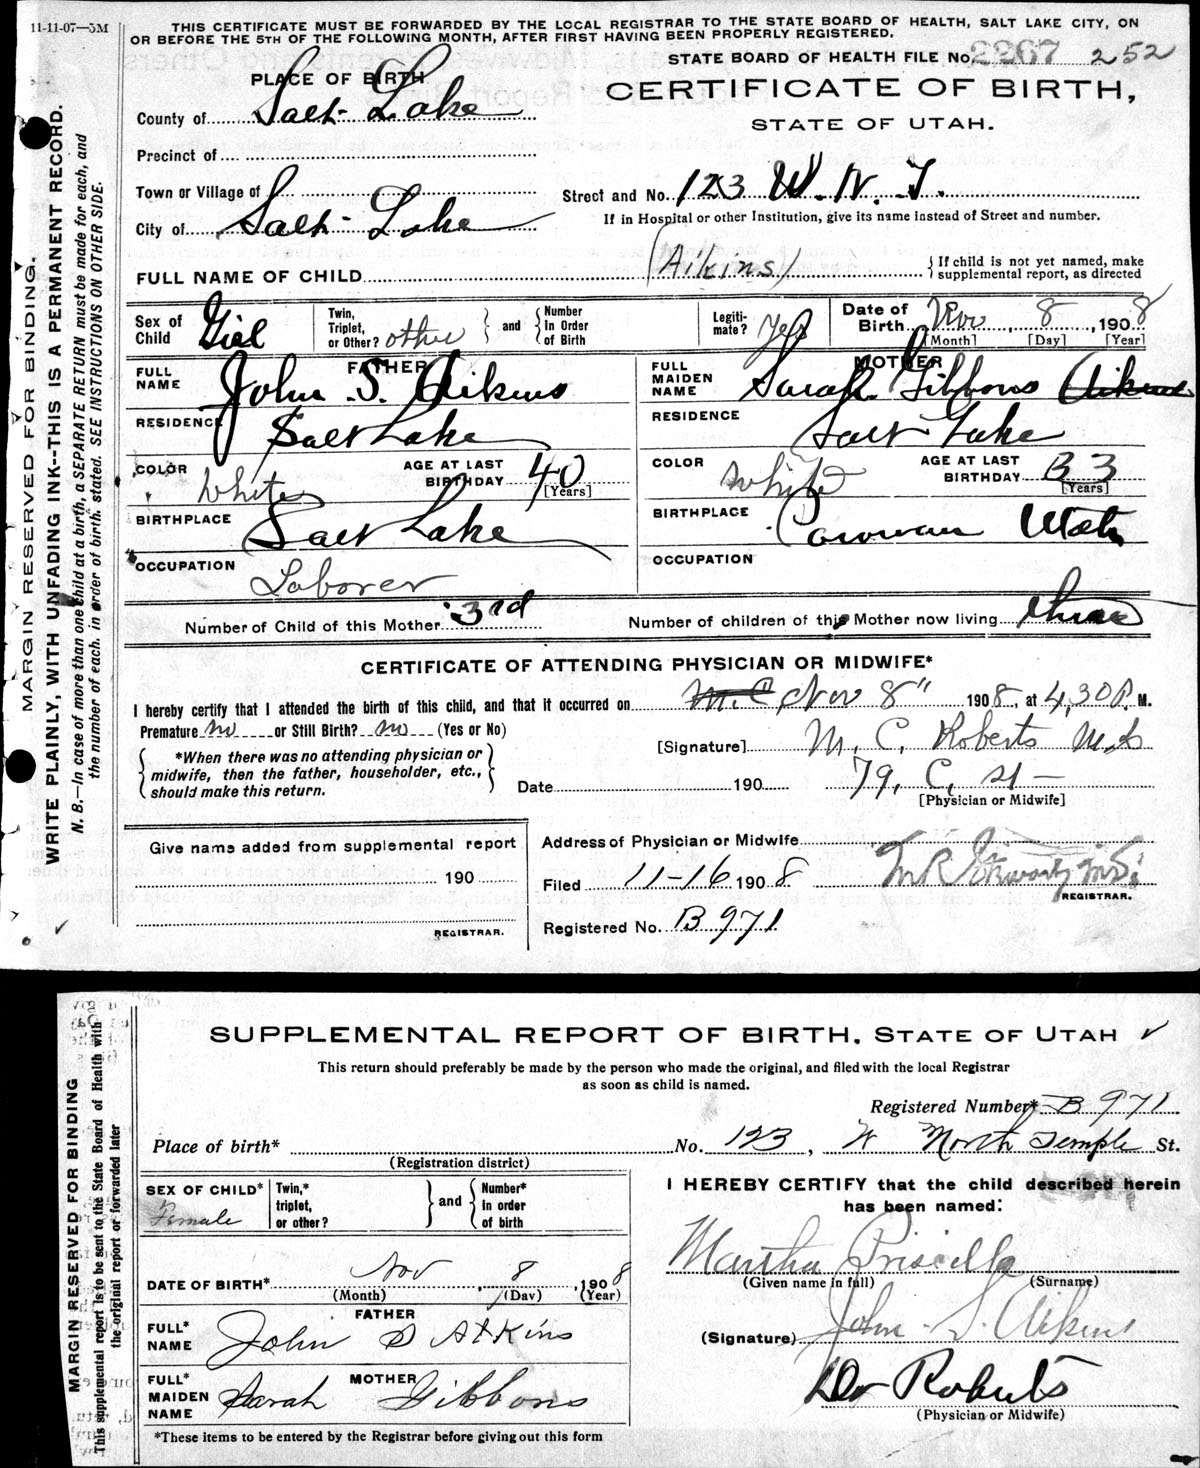 11-11-07—5M
THIS CERTIFICATE MUST BE FORWARDED BY THE LOCAL REGISTRAR TO THE STATE BOARD OF HEALTH, SALT LAKE CITY, ON
OR BEFORE THE 5TH OF THE FOLLOWING MONTH, AFTER FIRST HAVING BEEN PROPERLY REGISTERED.
STATE BOARD OF HEALTH FILE No. 2267 252
PLACE OF BIRTH
CERTIFICATE OF BIRTH,
STATE OF UTAH.
County of Salt Lake
Precinct of
Town or Village of
Street and No. 123 W. N. T.
City of Salt Lake
If in Hospital or other Institution, give its name instead of Street and number.
FULL NAME OF CHILD (Aikins) { If child is not yet named, make
supplemental report, as directed
Sex of Child Girl
Twin, Triplet, or Other? other } and { Number In Order of Birth
Legiti-mate? Yes
Date of Birth Nov 8, 1908
[Month] [Day] [Year]
FATHER
FULL NAME John S. Aikins
RESIDENCE Salt Lake
COLOR White AGE AT LAST BIRTHDAY 40 [Years]
BIRTHPLACE Salt Lake
OCCUPATION Laborer
MOTHER
FULL MAIDEN NAME Sarah Gibbons Aikins
RESIDENCE Salt Lake
COLOR White AGE AT LAST BIRTHDAY 33 [Years]
BIRTHPLACE Parowan Utah
OCCUPATION
Number of Child of this Mother 3rd Number of children of this Mother now living three
CERTIFICATE OF ATTENDING PHYSICIAN OR MIDWIFE*
I hereby certify that I attended the birth of this child, and that it occurred on M.C. Nov 8" 1908, at 4,30 P. M.
Premature no or Still Birth? no (Yes or No)
*When there was no attending physician or
midwife, then the father, householder, etc.,
should make this return.
[Signature] M. C. Roberts M.D.
Date 190 79, C, St —
[Physician or Midwife]
Give name added from supplemental report
190
REGISTRAR.
Address of Physician or Midwife
Filed 11-16 1908
REGISTRAR.
Registered No. B 971
MARGIN RESERVED FOR BINDING.
WRITE PLAINLY, WITH UNFADING INK--THIS IS A PERMANENT RECORD.
N. B.—In case of more than one child at a birth, a SEPARATE RETURN must be made for each, and
the number of each, in order of birth, stated. SEE INSTRUCTIONS ON OTHER SIDE.
SUPPLEMENTAL REPORT OF BIRTH, STATE OF UTAH
This return should preferably be made by the person who made the original, and filed with the local Registrar
as soon as child is named.
Registered Number* B 971
Place of birth* No. 123, W North Temple St.
(Registration district)
SEX OF CHILD* Female
Twin,* triplet, or other? } and { Number* In order of birth
DATE OF BIRTH* Nov, 8, 1908
(Month) (Day) (Year)
FATHER
FULL* NAME John S Atkins
MOTHER
FULL* MAIDEN NAME Sarah Gibbons
*These items to be entered by the Registrar before giving out this form
I HEREBY CERTIFY that the child described herein
has been named:
Martha Priscilla
(Given name in full) (Surname)
(Signature) John S. Aikins
Dr Roberts
(Physician or Midwife)
MARGIN RESERVED FOR BINDING
This supplemental report is to be sent to the State Board of Health with
the original report or forwarded later